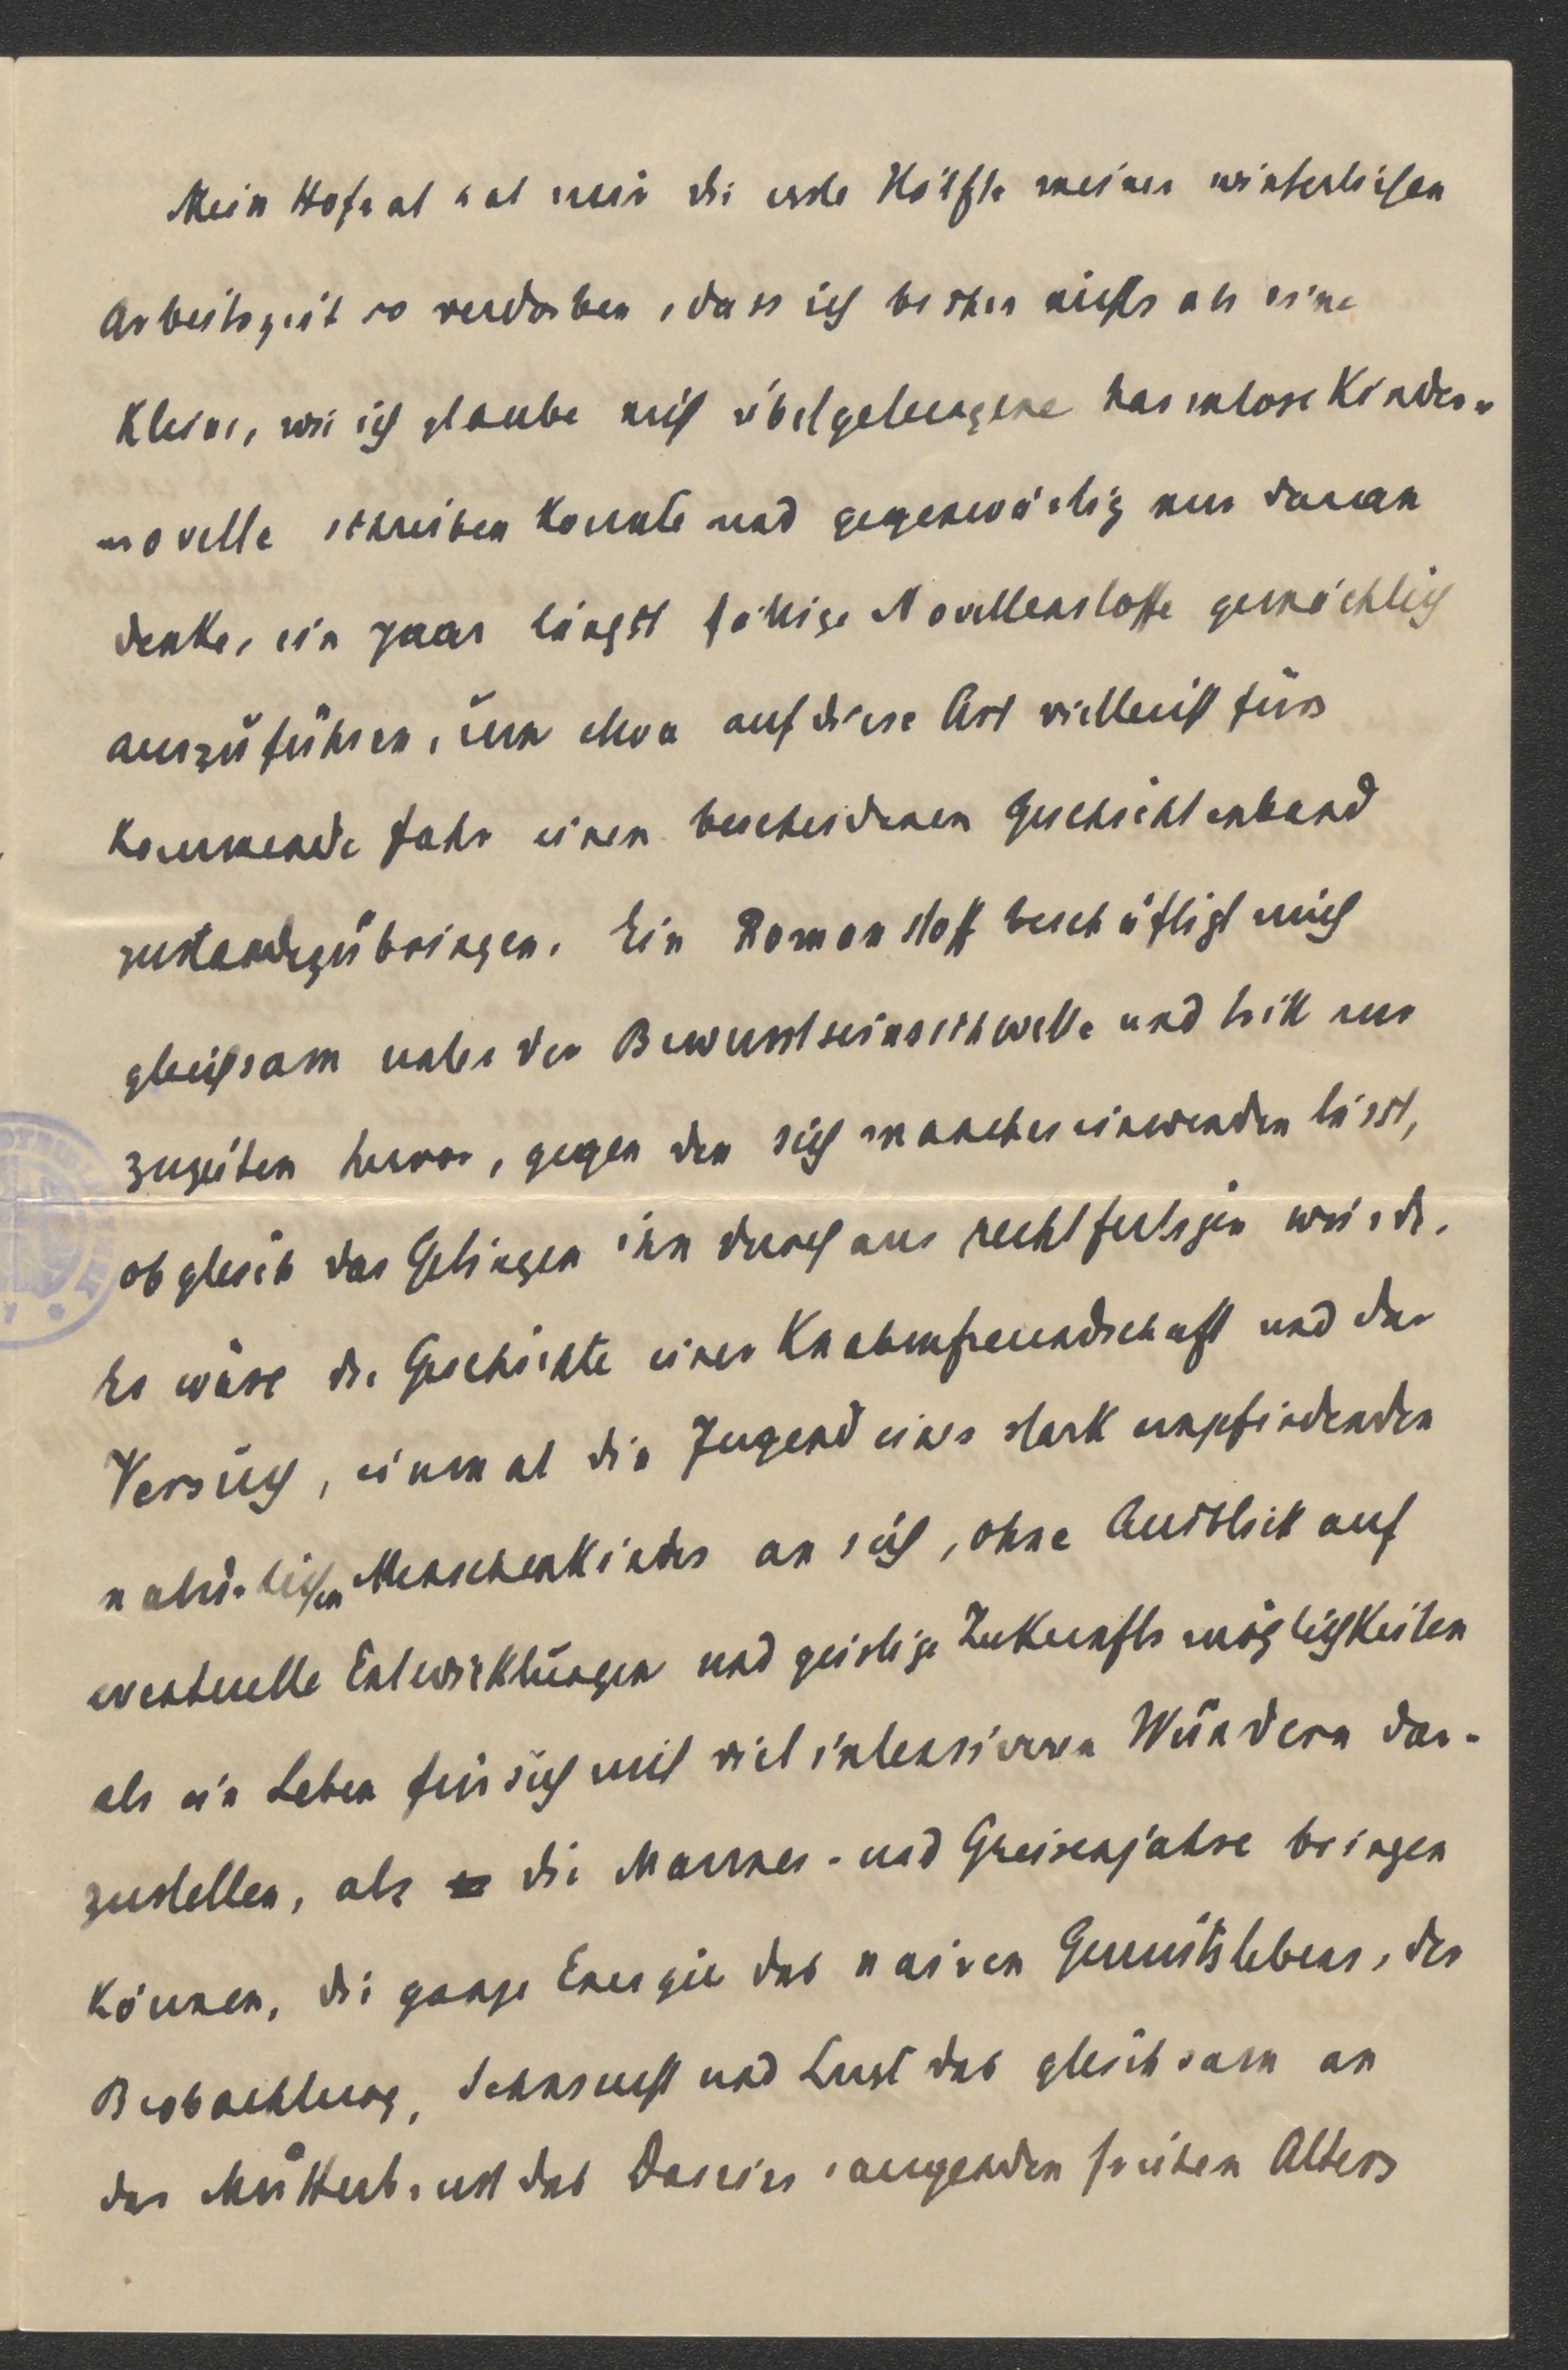 Mein Hofrat hat mir die erste Hälfte meiner winterlichen
Arbeitszeit so verdorben, dass ich bisher nichts als eine
kleine, wie ich glaube nicht übelgelungene harmlose Kinder-
novelle schreiben konnte und gegenwärtig nur daran
denke, ein paar längst fällige Novellenstoffe gemächlich
auszuführen, um etwa auf diese Art vielleicht fürs
kommende Jahr einen bescheidenen Geschichtenband
zustandezubringen. Ein Romanstoff beschäftigt mich
gleichsam unter der Bewusstseinsschwelle und tritt nur
zuzeiten hervor, gegen den sich manches einwenden lässt,
obgleich das Gelingen ihn durchaus rechtfertigen würde.
Es wäre die Geschichte einer Knabenfreundschaft und der
Versuch, einmal die Jugend eines stark empfindenden
natürlichen Menschenkindes an sich, ohne Ausblick auf
eventuelle Entwicklungen und geistige Zukunftsmöglichkeiten
als ein Leben für sich mit viel intensiveren Wundern dar-
zustellen, als die Mannes- und Greisenjahre bringen
können, die ganze Energie des naiven Gemütslebens, der
Beobachtung, Sehnsucht und Lust des gleichsam an
der Mutterbrust des Daseins saugenden frühen Alters